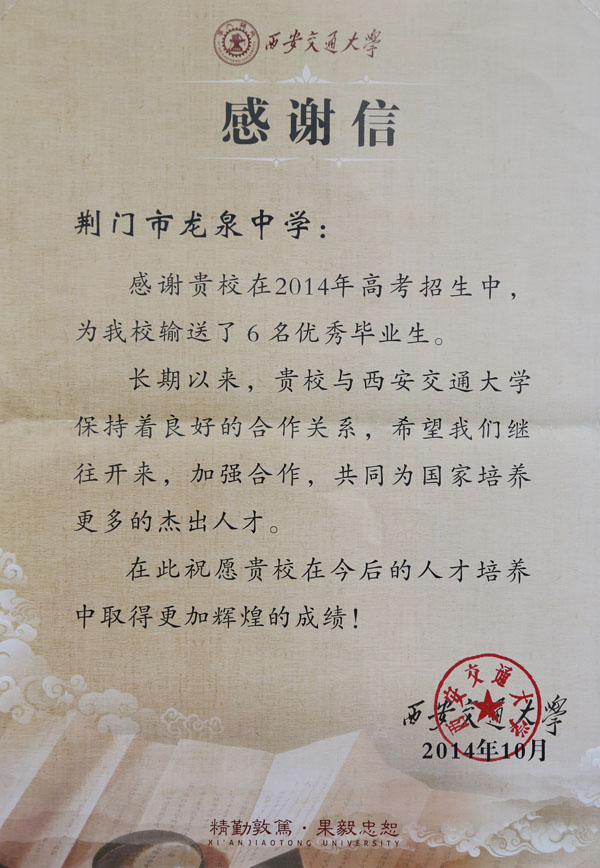 西安交通大学
感谢信
荆门市龙泉中学：
感谢贵校在2014年高考招生中，
为我校输送了6名优秀毕业生。
长期以来，贵校与西安交通大学
保持着良好的合作关系，希望我们继
往开来，加强合作，共同为国家培养
更多的杰出人才。
在此祝愿贵校在今后的人才培养
中取得更加辉煌的成绩！
西安交通大学
西安交通大学
2014年10月
精勤敦篤·果毅忠恕
XI'ANJIAOTONG UNIVERSITY